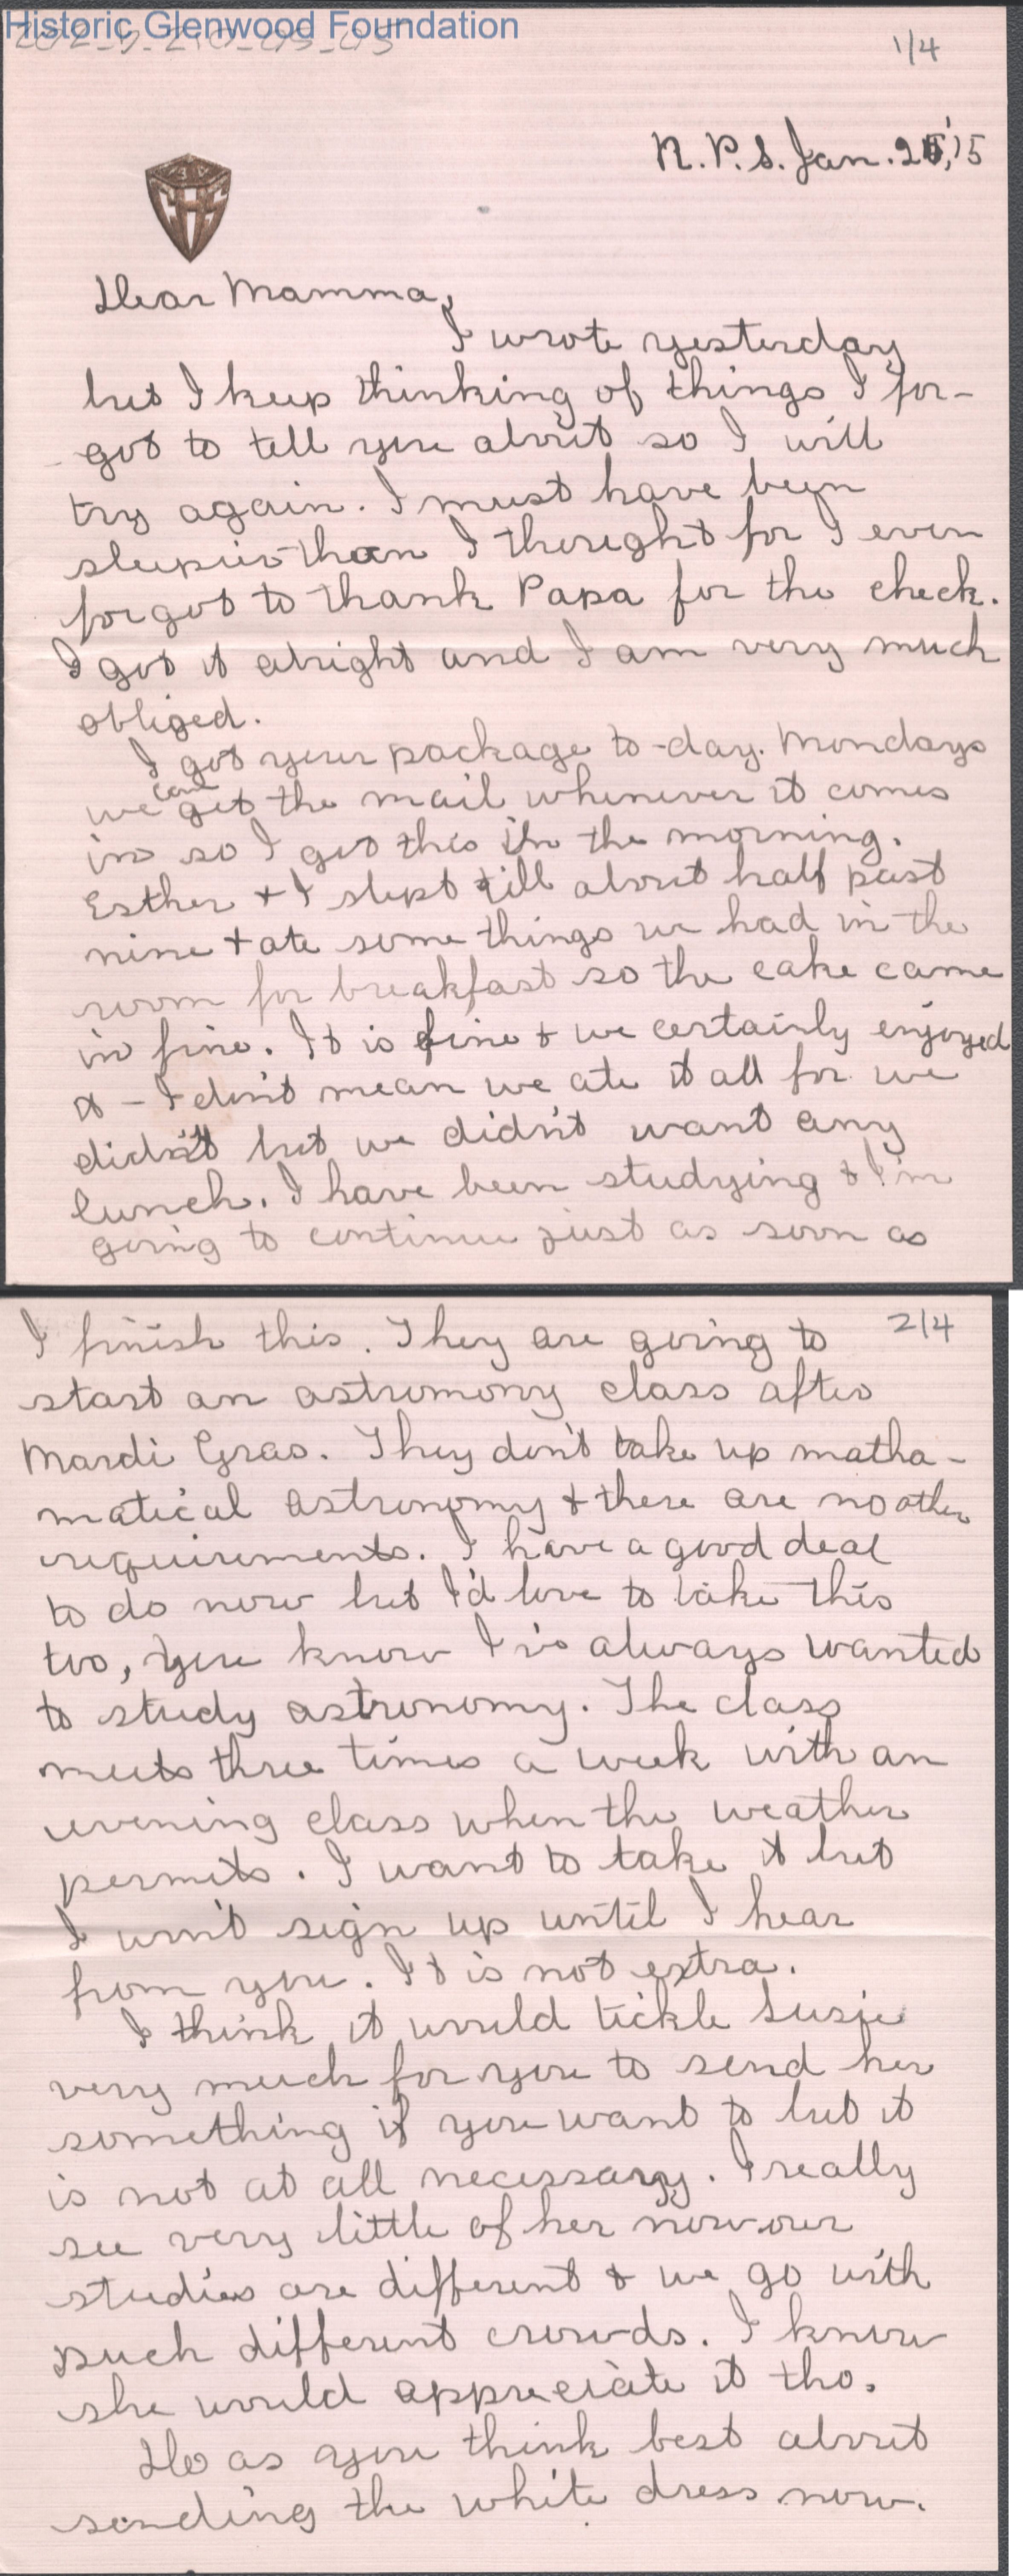 Historic Glenwood Foundation
1/4
N.P.S. Jan. 25, '15
Dear Mamma,
I wrote yesterday
but I keep thinking of things I for-
got to tell you about so I will
try again. I must have been
sleepier than I thought for I even
forgot to thank Papa for the check.
I got it alright and I am very much
obliged.
I got your package to-day. Mondays
we can get the mail whenever it comes
in so I got this in the morning.
Esther + I slept till about half past
nine + ate some things we had in the
room for breakfast so the cake came
in fine. It is fine + we certainly enjoyed
it - I don't mean we ate it all for we
didn't but we didn't want any
lunch. I have been studying + I'm
going to continue just as soon as
2/4
I finish this. They are going to
start an astromony class after
Mardi Gras. They don't take up matha-
matical astronomy + there are no other
requirements. I have a good deal
to do now but I'd love to take this
too, you know I've always wanted
to study astronomy. The class
meets three times a week with an
evening class when the weather
permits. I want to take it but
I won't sign up until I hear
from you. It is not extra.
I think it would tickle Susie
very much for you to send her
something if you want to but it
is not at all necessary. I really
see very little of her now our
studies are different + we go with
such different crowds. I know
she would appreciate it tho.
Do as you think best about
sending the white dress now.